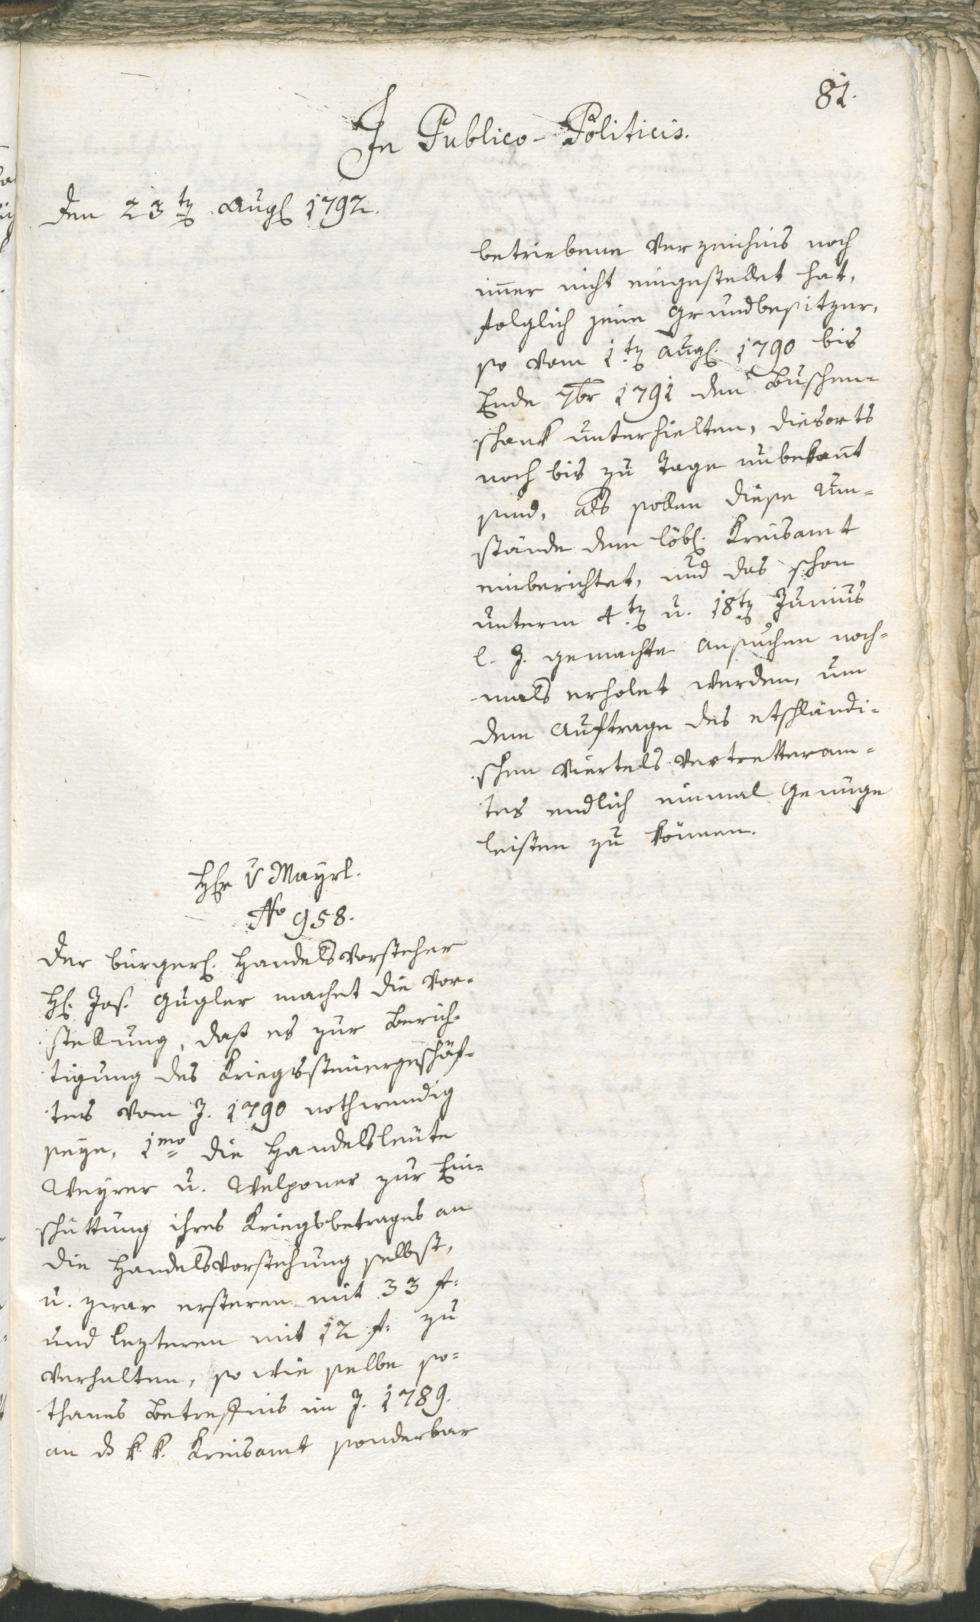 81.
In Publico-Politicis.
Den 23ten Aug. 1792.
betriebene Verzeichnis noch
immer nicht eingestellet hat,
folglich jene Grundbesitzer,
so vom 1ten Aug. 1790 bis
Ende 7br 1791 den Buschen-
schank unterhielten, diesorts
noch bis zu Tage unbekannt
sind, als sollen diese Um-
stände dem löbl. Kreisamt
einberichtet, und das schon
unterm 4ten u. 18ten Junius
l. J. gemachte Ansuchen noch-
mals erholet werden, um
dem Auftrage des etschländi-
schen Viertels Vertretteram-
tes endlich einmal Genüge
leisten zu können.
Hr v Mayrl.
No 958.
Der bürgerl. Handelsvorsteher
H. Jos. Gugler machet die Vor-
stellung, daß es zur Berich-
tigung des Kriegssteuergeschäf-
tes vom J. 1790 nothwendig
seye, 1mo die Handelsleute
Weyrer u. Welponer zur Ein-
schüttung ihres Kriegsbetrages an
die Handelsvorstehung selbst,
u. zwar ersteren mit 33 f.
und lezteren mit 12 f. zu
verhalten, so wie selbe so-
thanes Betreffnis im J. 1789.
an d k. k. Kreisamt sonderbar